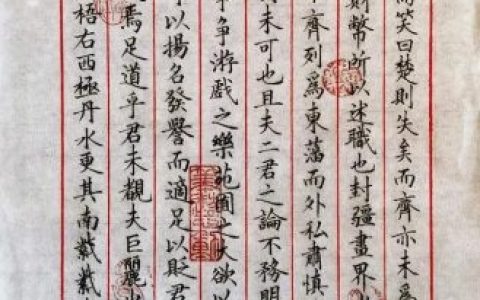 而笑曰楚則失矣而齊亦未爲
財幣所以述職也封疆畫界
齊列爲東藩而外私肅慎
未可也且夫二君之論不務明
爭游戲之樂苑囿之大欲以
可以揚名發譽而適足以貶君
焉足道乎君未覩夫巨麗也
梧右西極丹水更其南紫